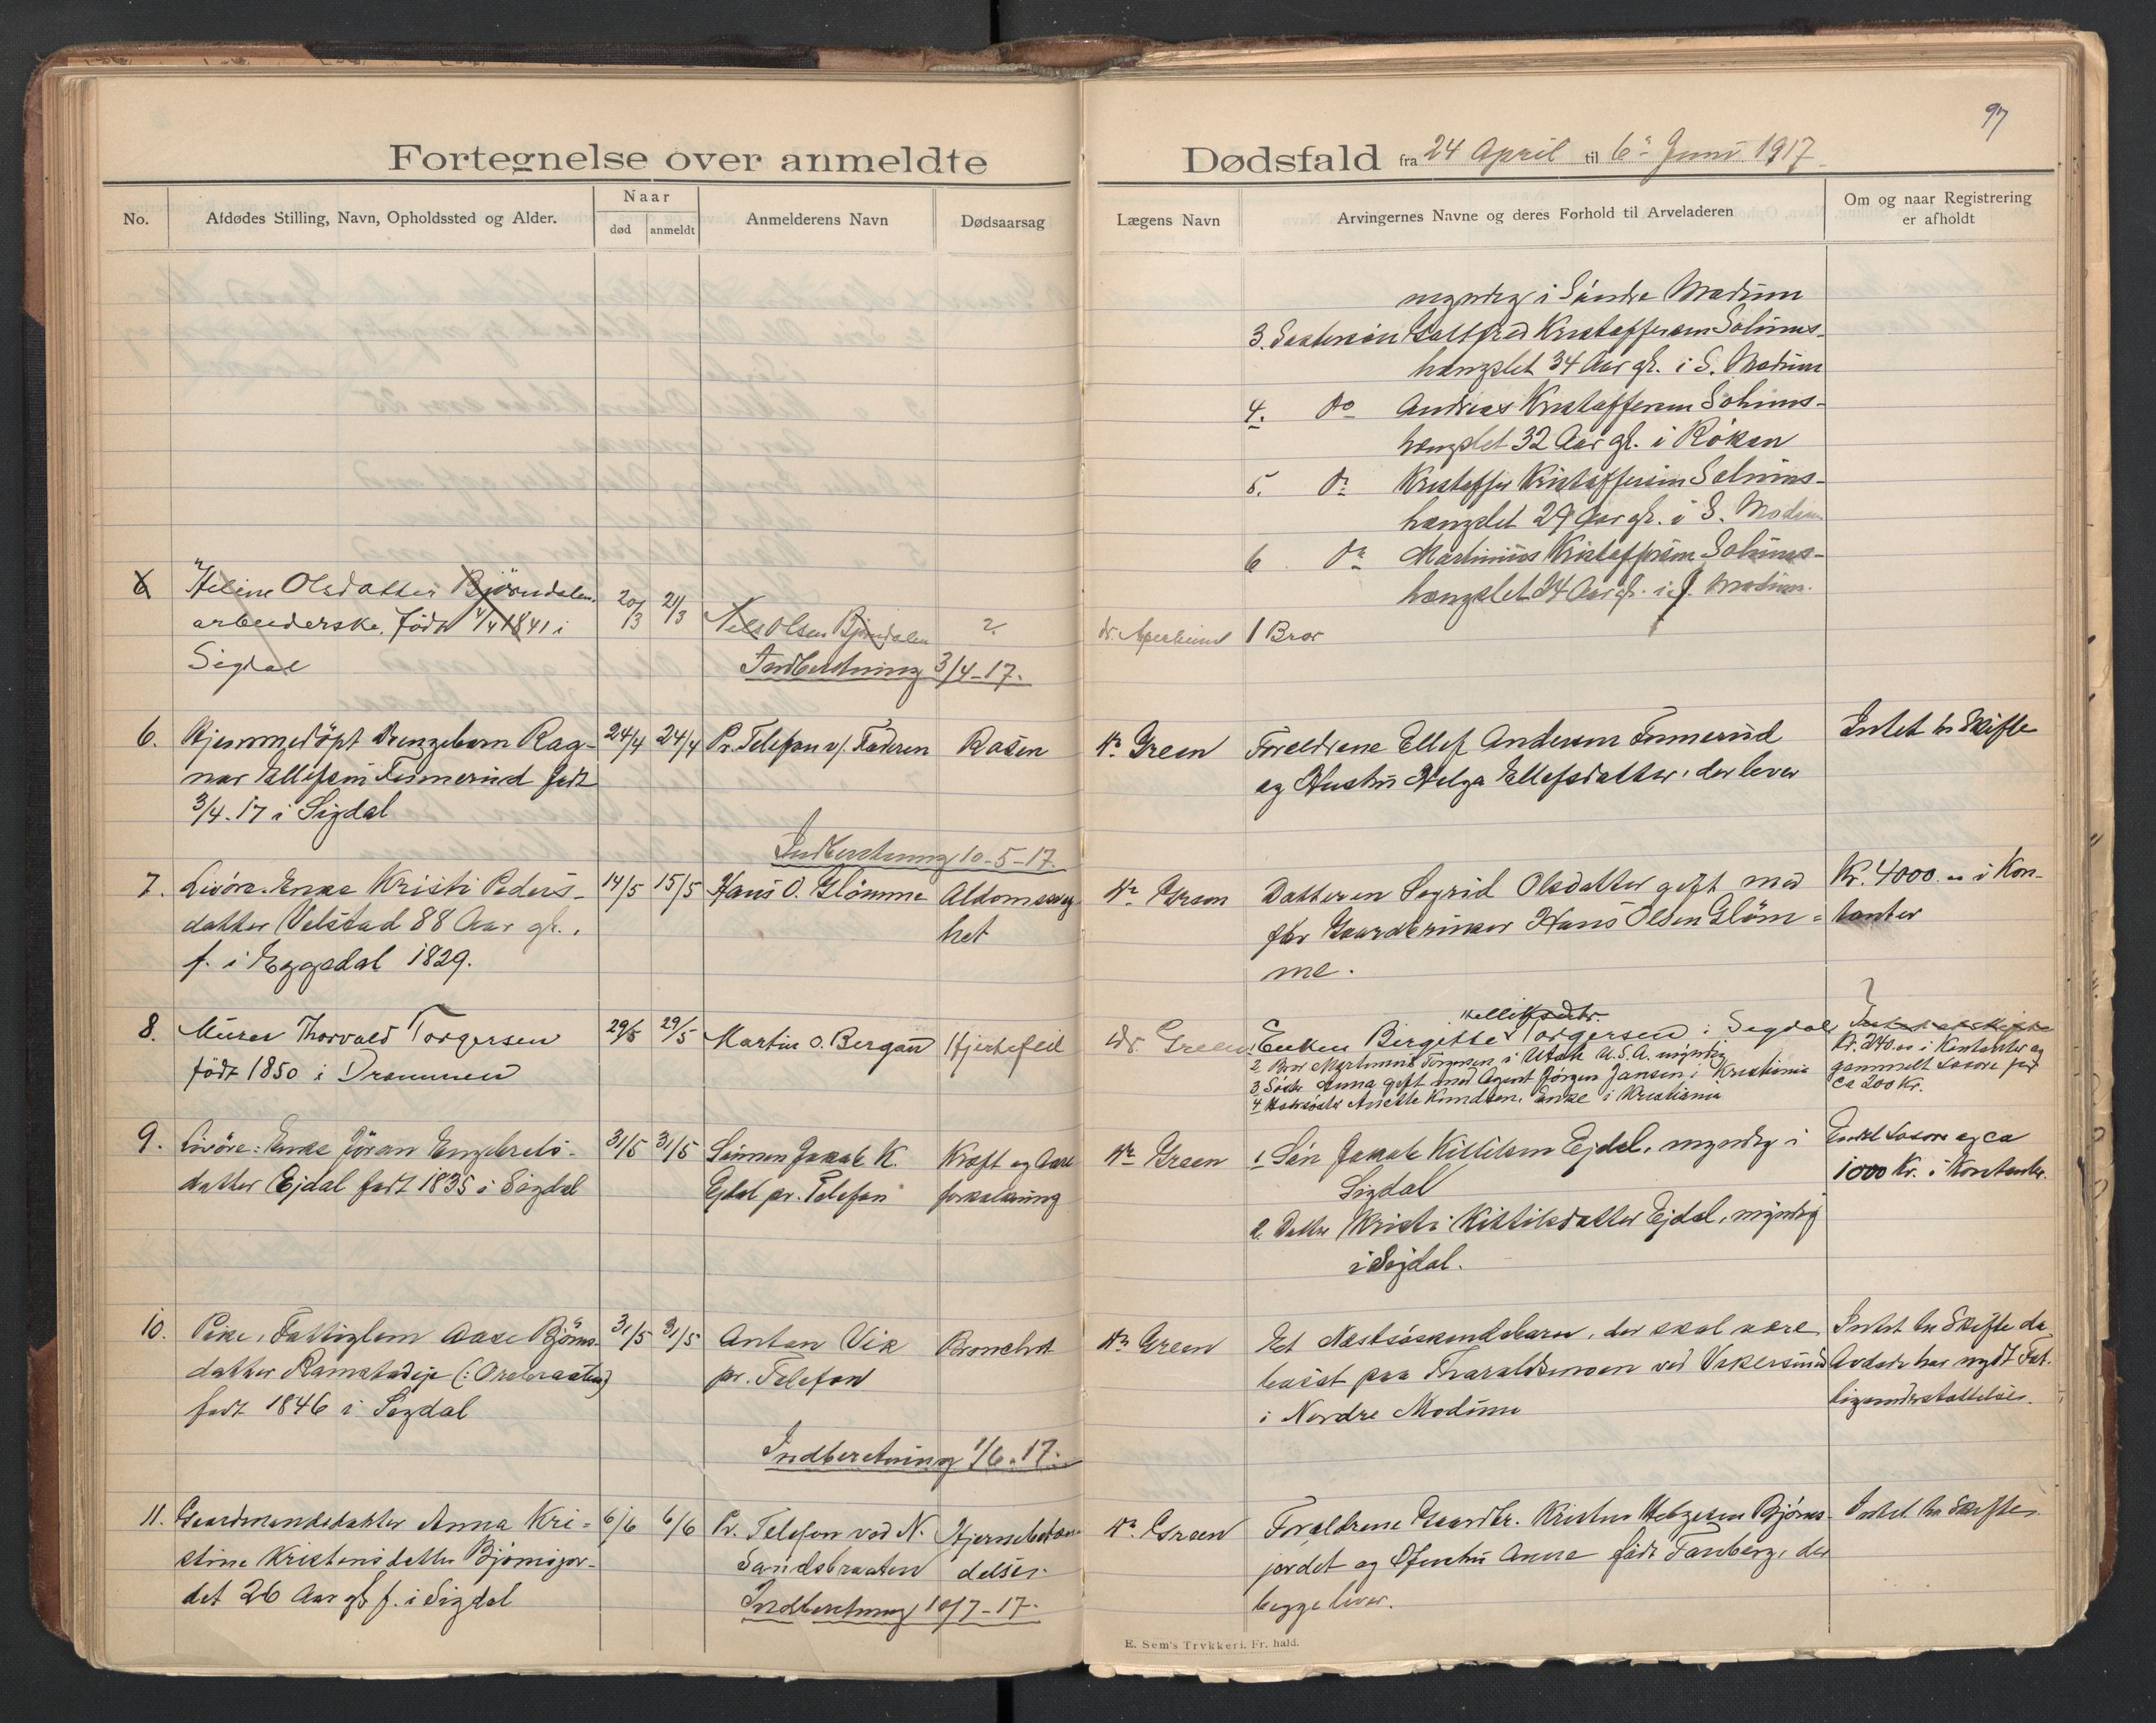 97
Fortegnelse over anmeldte Dødsfald fra 24 April til 6 Juni 1917
No.
Afdødes Stilling, Navn, Opholdssted og Alder.
Naar
død
anmeldt
Anmelderens Navn
Dødsaarsag
Lægens Navn
Arvingernes Navne og deres Forhold til Arveladeren
Om og naar Registrering
er afholdt
myndig i Søndre Modum
3. Kristoffersen Solums-
hængslet 34 Aar gl. i S. Modum
4. do Andreas Kristoffersen Solums-
hængslet 32 Aar gl. i Røken
5. do Kristoffer Kristoffersen Solums-
hængslet 29 Aar gl. i S. Modum
6 do Martinius Kristoffersen Solums-
hængslet 24 Aar gl. i S. Modum.
6 Helene Olsdatter Bjørndalen
arbeiderske, født 4/4 1841 i
Sigdal
20/3
21/3
Nels Olsen Bjørndalen
?
dr.
1 Bror
Indberetning 3/4-17.
6. Hjemmedøpt Drengebarn Rag-
nar Ellefsen Finnerud født
3/4.17 i Sigdal
24/4
24/4
Pr. Telefon v/. Faderen
Rosen
Dr. Green
Forældrene Ellef Andersen Finnerud
og Hustru Helga Ellefsdatter, der lever
Intet to Skifte
Indberetning 10-5-17.
7. Livøre. Enke Kristi Peders-
datter Velstad 88 Aar gl.,
f. i Eggedal 1829.
14/5
15/5
Hans O. Glømme
Aldomssvag
het
Dr. Green
Datteren Sigrid Olsdatter gift med
fhv Gaardbruker Hans Olsen Gløm-
me.
Kr. 4000.00 i Kon-
tanter
8. Murer Thorvald Torgersen
født 1850 i Drammen
29/5
29/5
Martin O. Bergan
Hjertefeil
Dr. Green
Kelliksdtr.
1 Enken Birgitte Torgersen i Sigdal
2 Bror Martinius Torgersen i Utah U.S.A. myndig
3 Søster Anna gift med Agent Jørgen Jansen i Kristiania
4 Halvsøster Anette Knudsen, Enke i Kristiania
?
Intet at skifte
Kr. 240.00 i Kontanter og
gammelt Løsøre for
ca 200 Kr.
9. Livøre: Enke Jøran Engebrets-
datter Ejdal født 1835 i Sigdal
31/5
31/5
Sønnen Jakob K.
Ejdal pr. Telefon
Kræft og Aare
forkalkning
Dr. Green
1 Søn Jakob Kittilsen Ejdal, myndig i
Sigdal
2. Datter Kristi Kittilsdatter Ejdal, myndig
i Sigdal.
Endel Løsøre og ca
1000 Kr. i Kontanter.
10. Pike, Fattiglem Aase Bjørns-
datter Ramstadeje (: Orebraaten)
født 1846 i Sigdal
31/5
31/5
Anton Vik
pr. Telefon
Bronchit
Dr. Green
Et Næstsøskendebarn, der skal være
bosat paa Tharaldsmoen ved Vikersund
i Nordre Modum
Intet to Skifte da
Avdøde har nydt Fat-
tigunderstøttelse.
Indberetning 1/6.17.
11. Gaardmandsdatter Anna Kri-
stine Kristensdatter Bjørnsjor-
det 26 Aar gl f. i Sigdal
6/6
6/6
Pr. Telefon ved N.
Sandsbraaten
Hjernebetæn
delse.
Dr. Green
Forældrene Gaardbr. Kristen Helgesen Bjørns-
jordet og Hustru Anne født Fauberg, der
begge lever.
Intet to Skifte
Indberetning 10/7-17.
E. Sem's Trykkeri. Fr. hald.